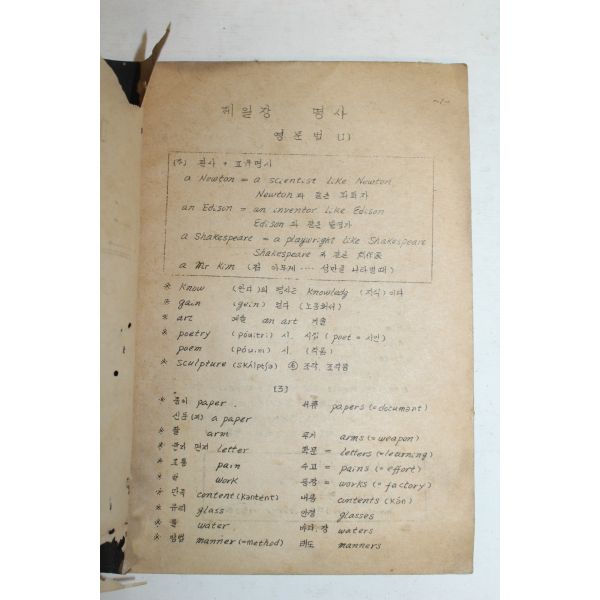 ~1~
제일장 명사
영문법 (1)
(주) 관사 + 고유명사
a Newton = a scientist like Newton
Newton과 같은 과학자
an Edison = an inventor like Edison
Edison과 같은 발명가
a Shakespeare = a playwright like Shakespeare
Shakespeare 와 같은
a Mr Kim (김 아무게 ‥‥ 성만을 나타낼때)
※ Know (안다)의 명사는 Knowledg (지식)이다
※ gain (gein) 얻다 (노동해서)
※ art 예술 an art 기술
※ poetry (póuitri) 시. 시집 (poet = 시인)
poem (póuim) 시. (작품)
※ sculpture (skʌ́lptʃə) 조각. 조각품
[3]
※ 종이 paper. 서류 papers (=document)
신문(지) a paper
※ 팔 arm 무기 arms (=weapon)
※ 편지 letter 학문 = letters (=learning)
※ 고통 pain 수고 = pains (=effort)
※ 일 work 공장 = works (= factory)
※ 만족 content (kəntént) 내용 contents (kɔ́n)
※ 유리 glass 안경 glasses
※ 물 water. 바다. 강 waters
※ 방법 manner (=method) 태도 manners